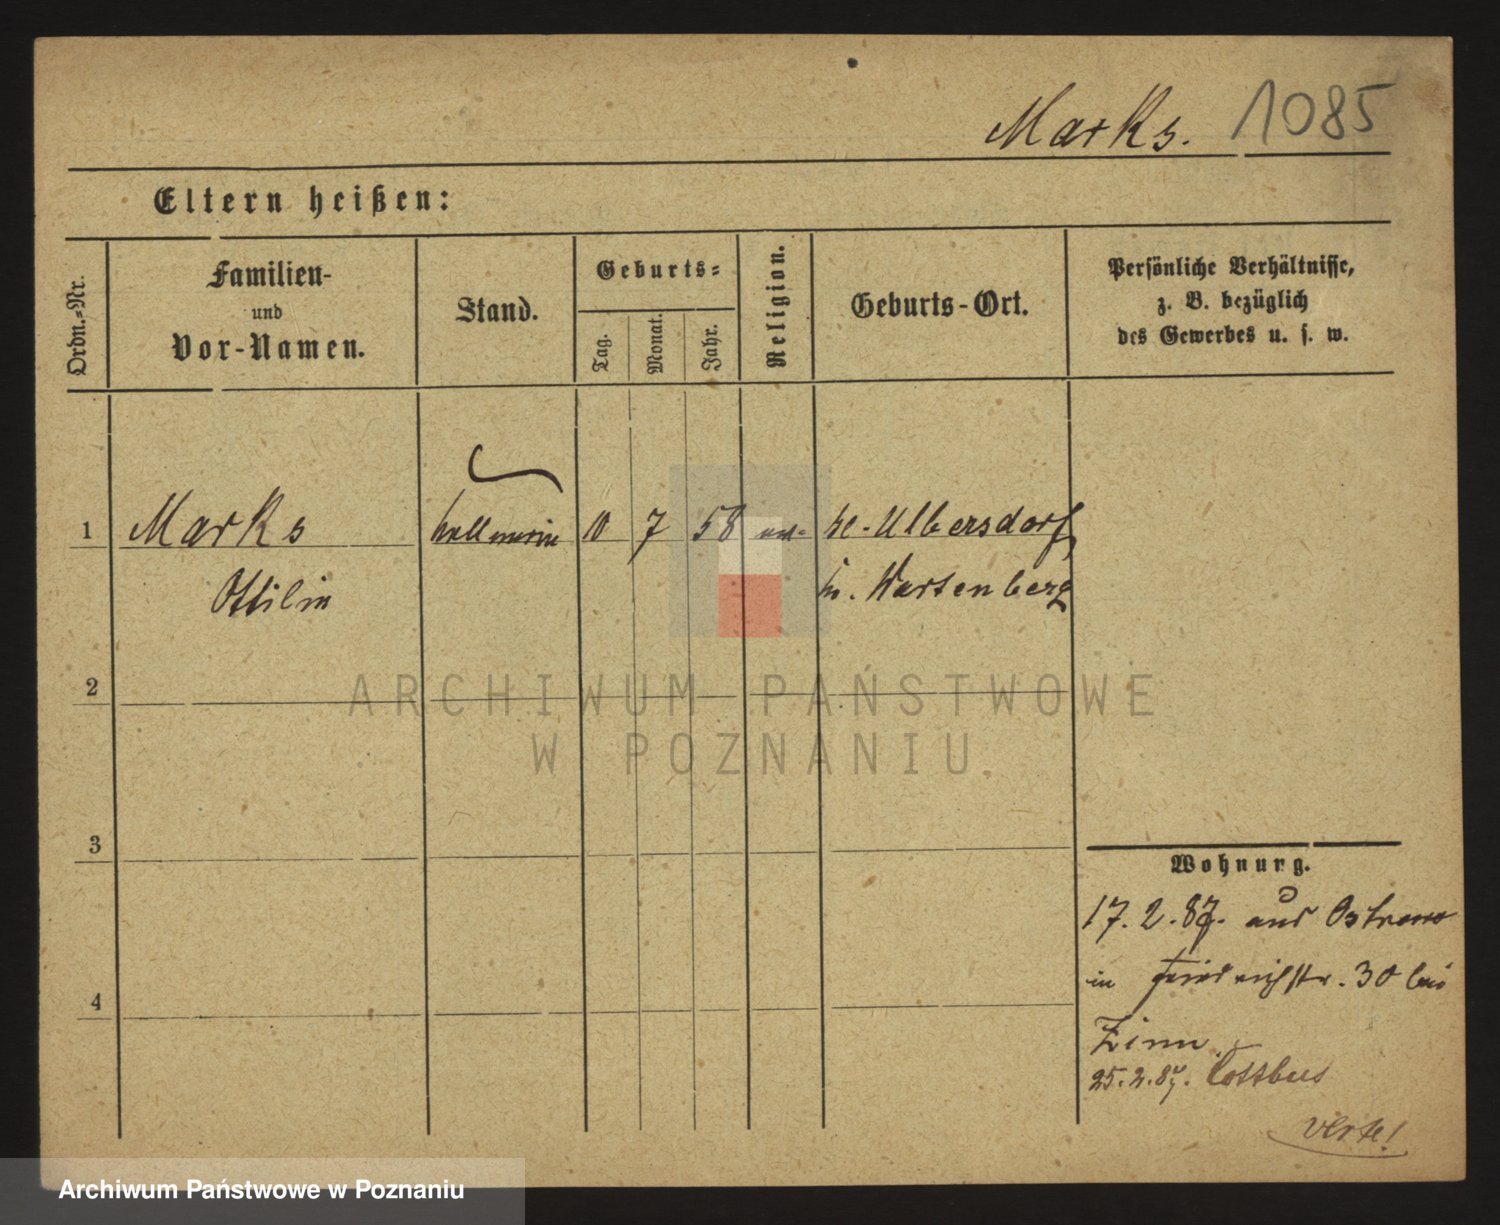 Marks. 1085
Eltern heißen:
Ordn.=Nr.
Familien-
und
Vor-Namen.
Stand.
Geburts=
Tag.
Monat.
Jahr.
Religion.
Geburts-Ort.
Persönliche Verhältnisse,
z. B. bezüglich
des Gewerbes u. s. w.
1 Marks Kellnerin 10 7 58 ev. Kl.-Ulbersdorf,
Ottilie Kr. Wartenberg
2
3
4
Wohnung.
17.2.87. aus Ostrowo
in Friedrichstr. 30 bei
Zinn.
25.2.87. Cottbus
verte!
ARCHIWUM PAŃSTWOWE
W POZNANIU
Archiwum Państwowe w Poznaniu